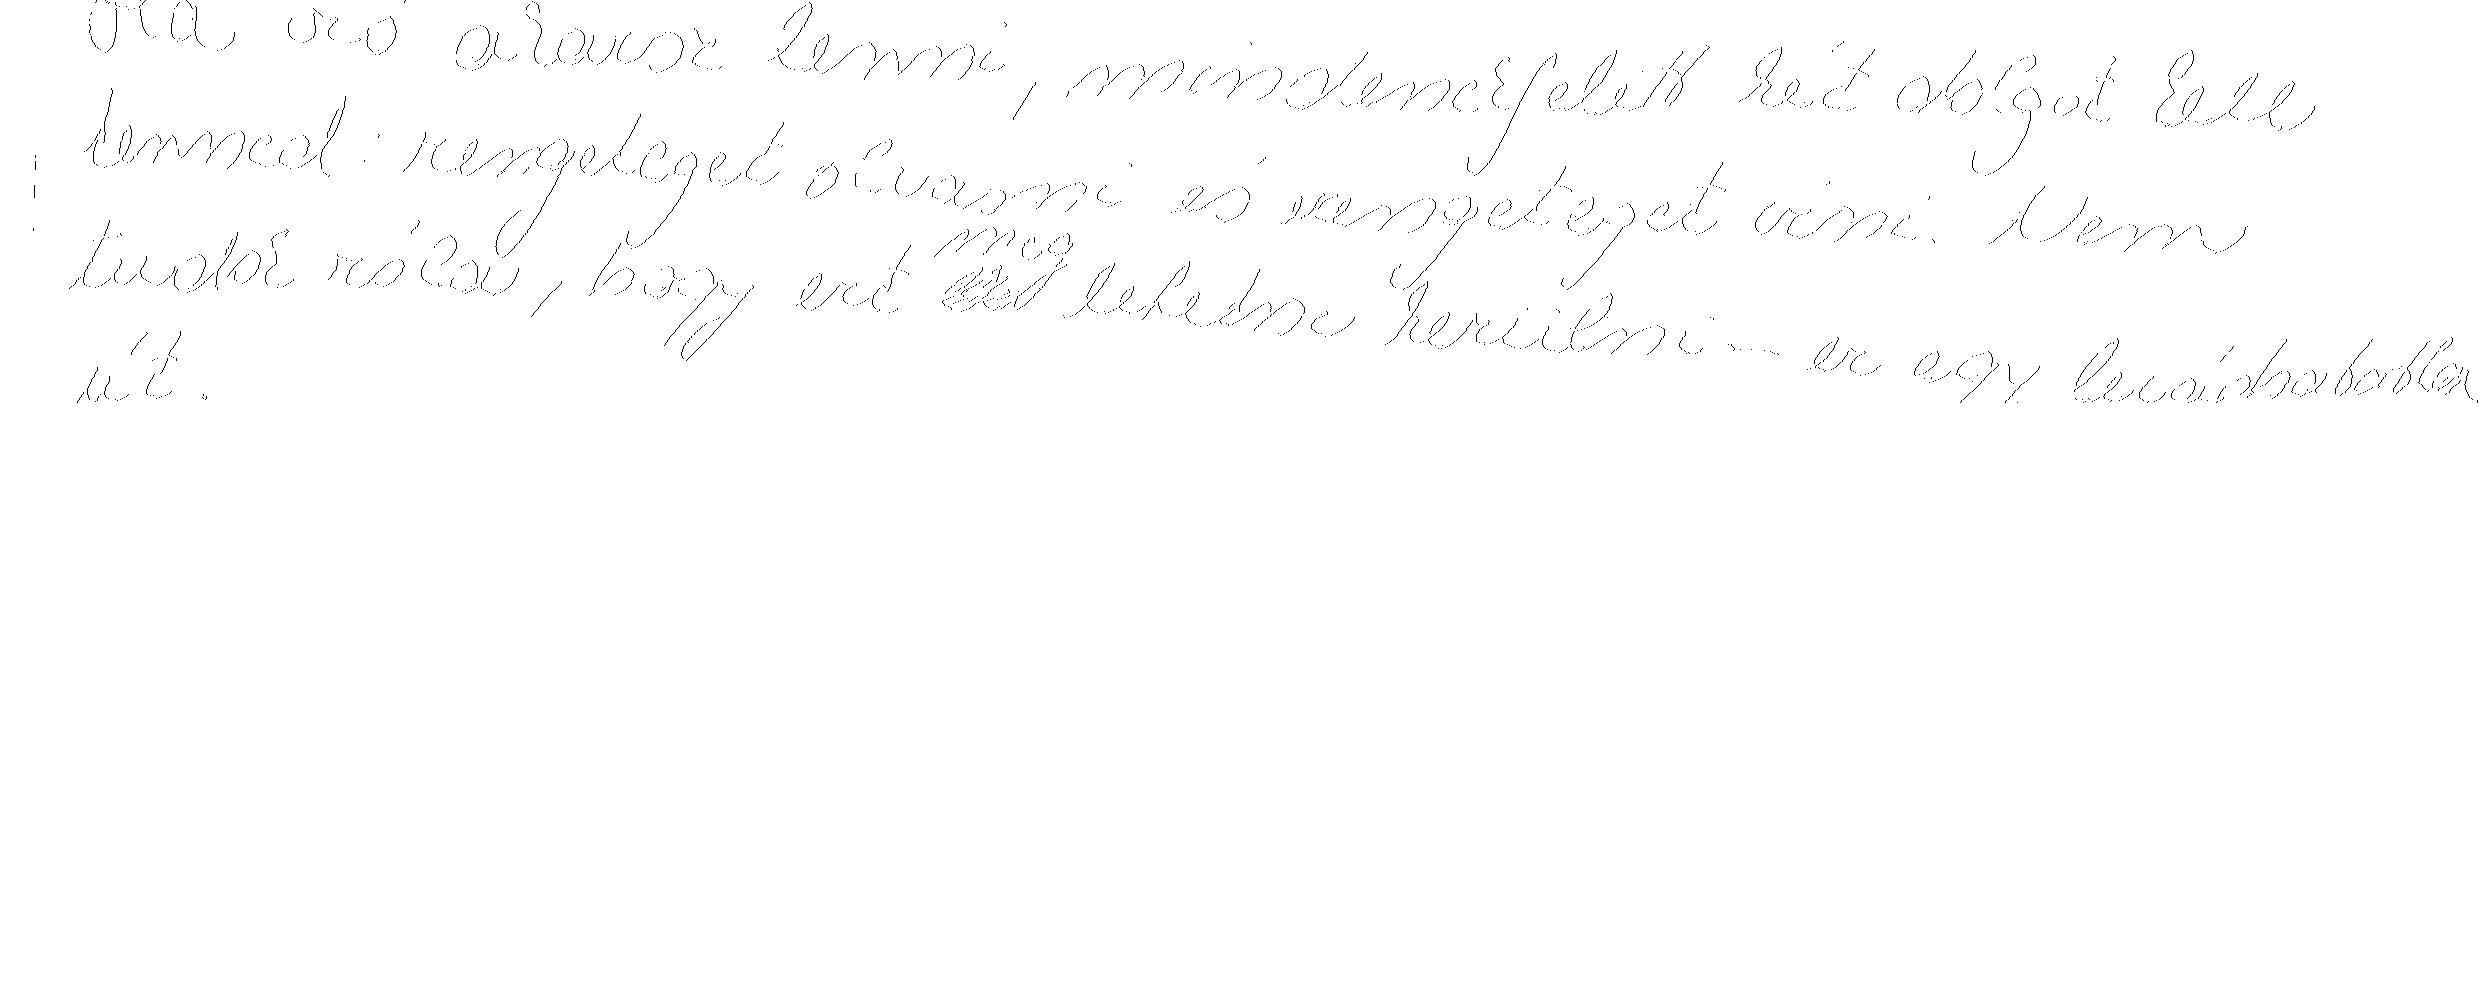 Ha író akarsz lenni, mindenekfelett két dolgot kell
tenned: rengeteget olvasni és rengeteget írni. Nem
tudok róla, hogy ezt meg lehetne kerülni – ez egy levághatatlan
út.